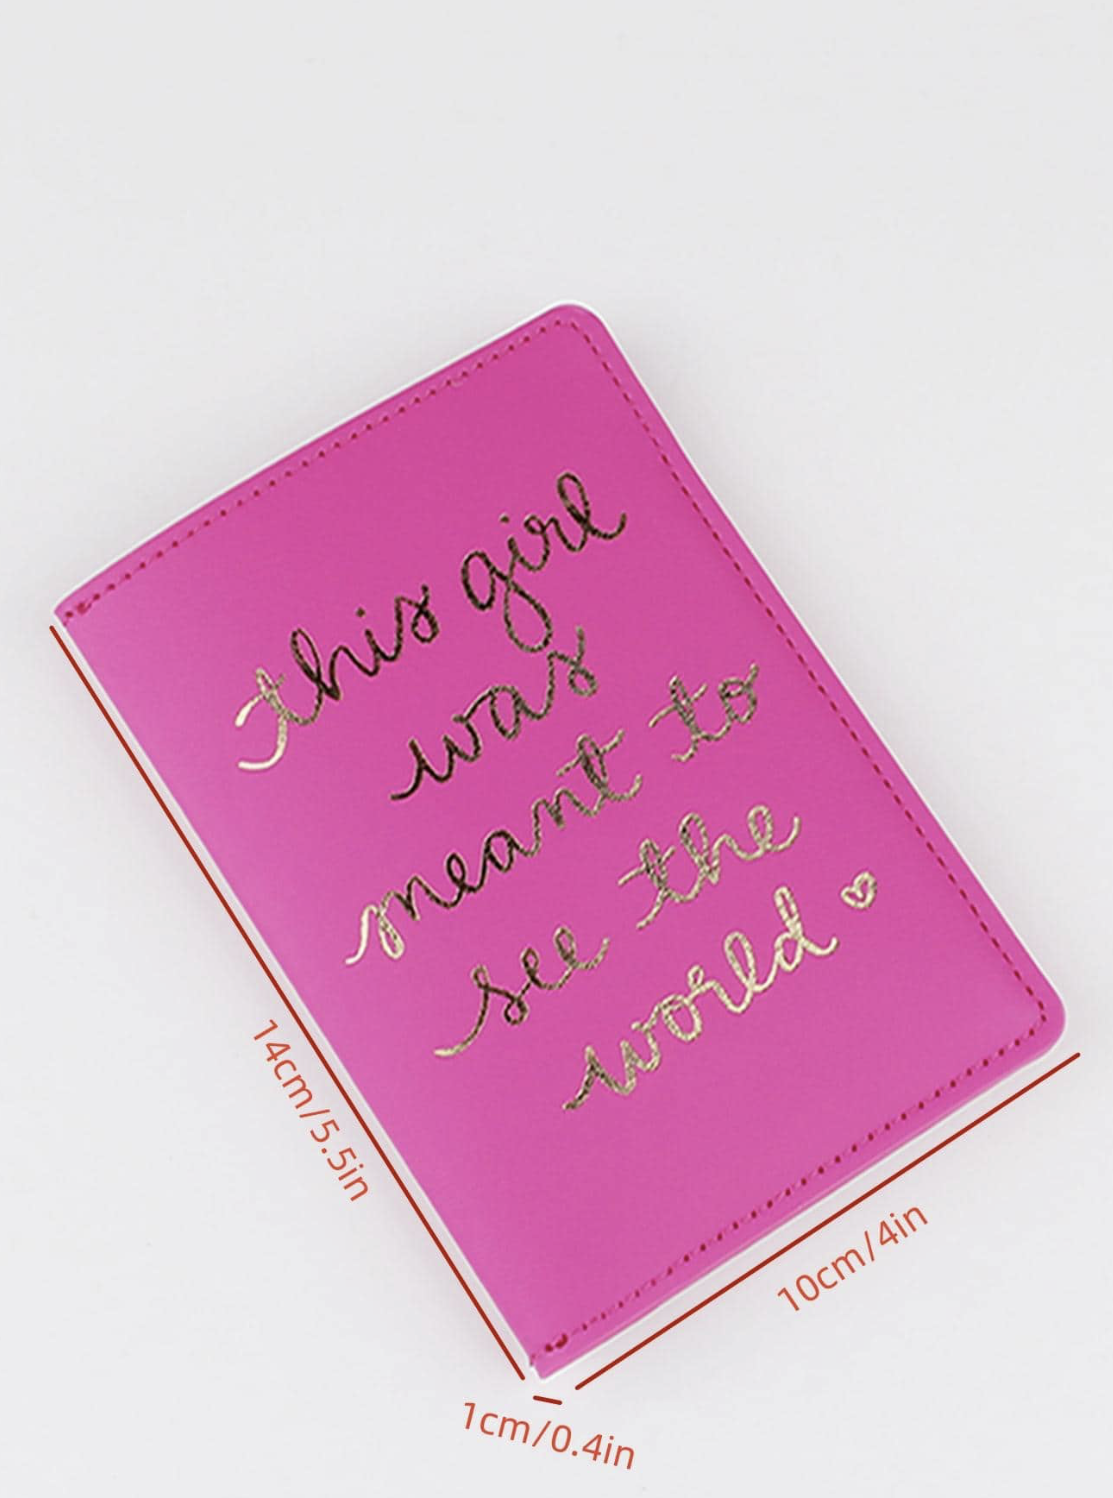 this girl
was
meant to
see the
world
14cm/5.5in
10cm/4in
1cm/0.4in